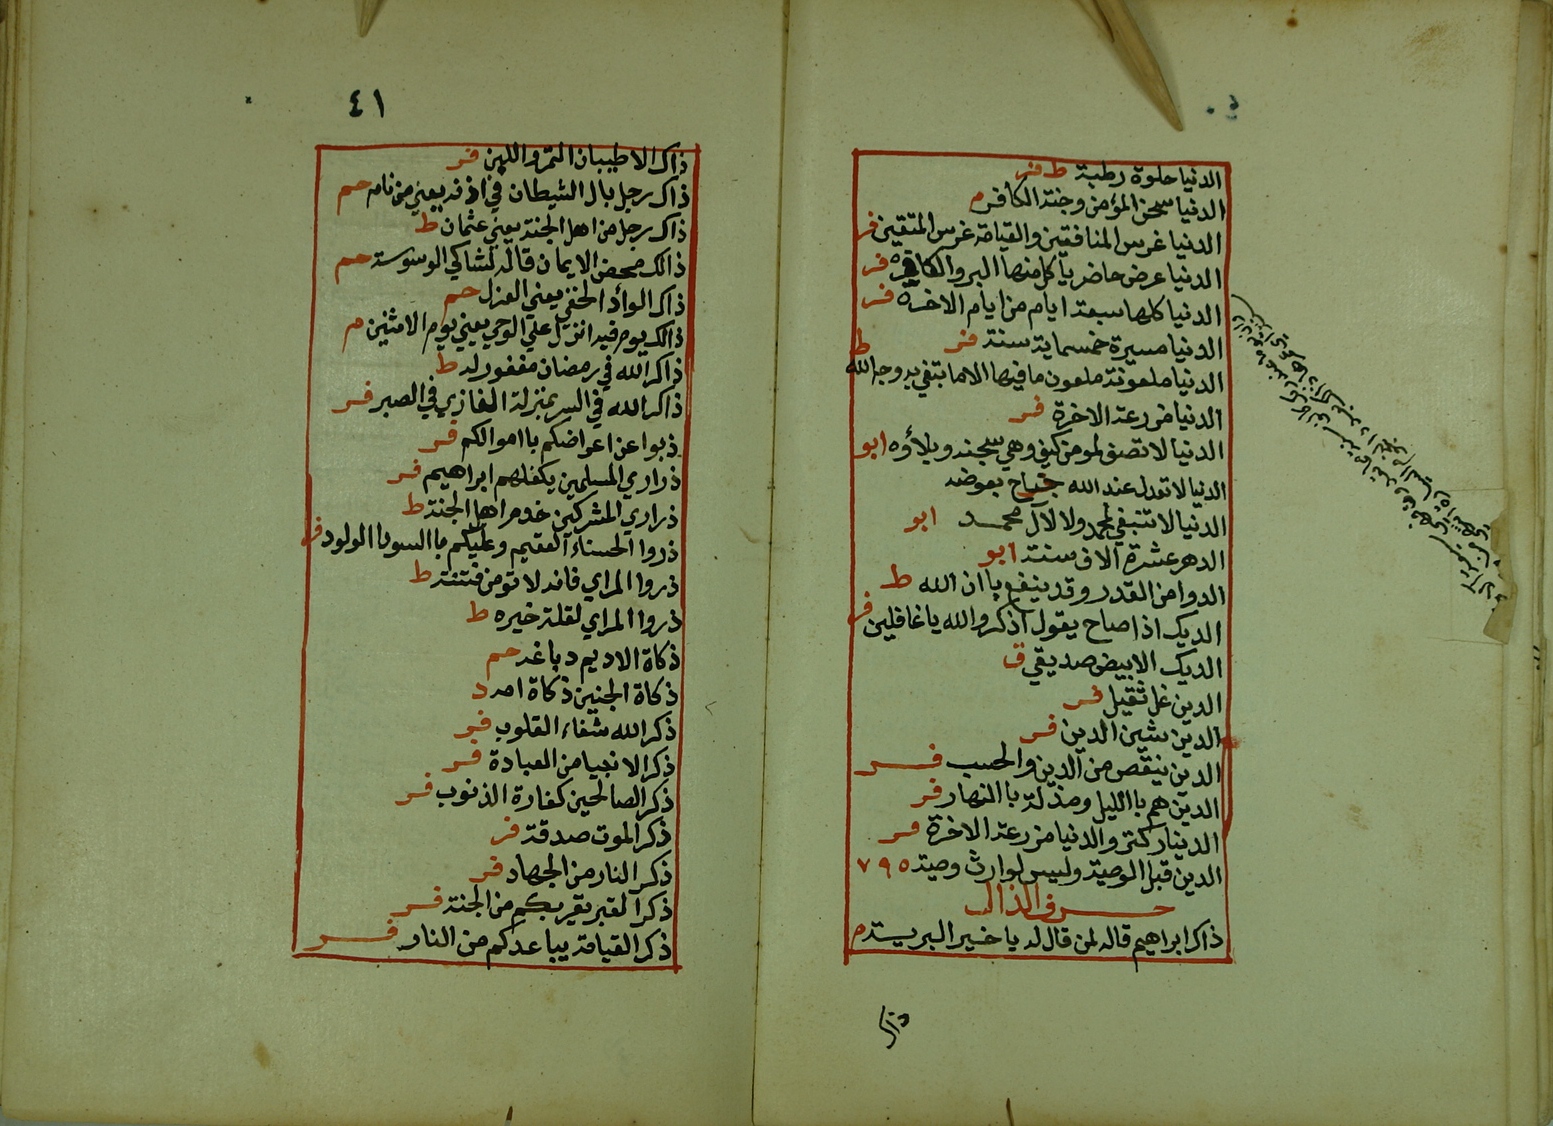 الدنيا حلوة رطبة ط فر
الدنيا سجن المؤمن وجنة الكافر م
الدنيا غرس المنافقين والقيامة غرس المتقين فر
الدنيا عرض حاضر ياكل منها البر والكافر فر
الدنيا كلها سبعة ايام من ايام الاخرة فر
الدنيا مسيرة خمسماية سنة فر
الدنيا ملعونة ملعون ما فيها الا ما ابتغي به وجه الله ط
الدنيا مزرعة الاخرة فر
الدنيا لا تصفي لمومن كيف وهي سجنه وبلاؤه ابو
الدنيا لا تعدل عند الله جناح بعوضه
الدنيا لا تنبغي لمحمد ولا لال محمد ابو
الدهر عشرة الاف سنة ابو
الدوا من القدر وقد ينفع باذن الله ط
الديك اذا صاح يقول اذكروا الله يا غافلين فر
الديك الابيض صديقي ق
الدين غل ثقيل فر
الدين يشين الدين فر
الدين ينقص من الدين والحسب فر
الدين هم بالليل ومذلة باالنهار فر
الدينار كنز والدنيا مزرعة الاخرة فر
الدين قبل الوصية وليس لوارث وصية ٧٩٥
حرف الذال
ذاك ابراهيم قاله لمن قال له يا خير البرية م
ذاك
٤١
ذاك الاطيبان التمر واللبن فر
ذاك رجل بال الشيطان في اذنه يعني من نام حم
ذاك رجل من اهل الجنة يعني عثمان ط
ذالك محض الايمان قاله لشاكي الوسوسة حم
ذاك الوأد الخفي يعني العزل حم
ذالك يوم فيه انزل علي الوحي يعني يوم الاثنين م
ذاكر الله في رمضان مغفور له ط
ذاكر الله في السر بمنزلة الغازي في الصبر فر
ذبوا عن اعراضكم بااموالكم فر
ذراري المسلمين يكفلهم ابراهيم فر
ذراري المشركين خدم اهل الجنة ط
ذروا الحسناء العقيم وعليكم باالسودا الولود فر
ذروا المراي فانه لا تومن فتنته ط
ذروا المراي لقلة خيره ط
ذكاة الاديم دباغه حم
ذكاة الجنين ذكاة امه د
ذكر الله شفاء القلوب فر
ذكر الانبيا من العبادة فر
ذكر الصالحين كفارة الذنوب فر
ذكر الموت صدقة فر
ذكر النار من الجهاد فر
ذكر القبر يقربكم من الجنة فر
ذكر القيامة يباعدكم من النار فر